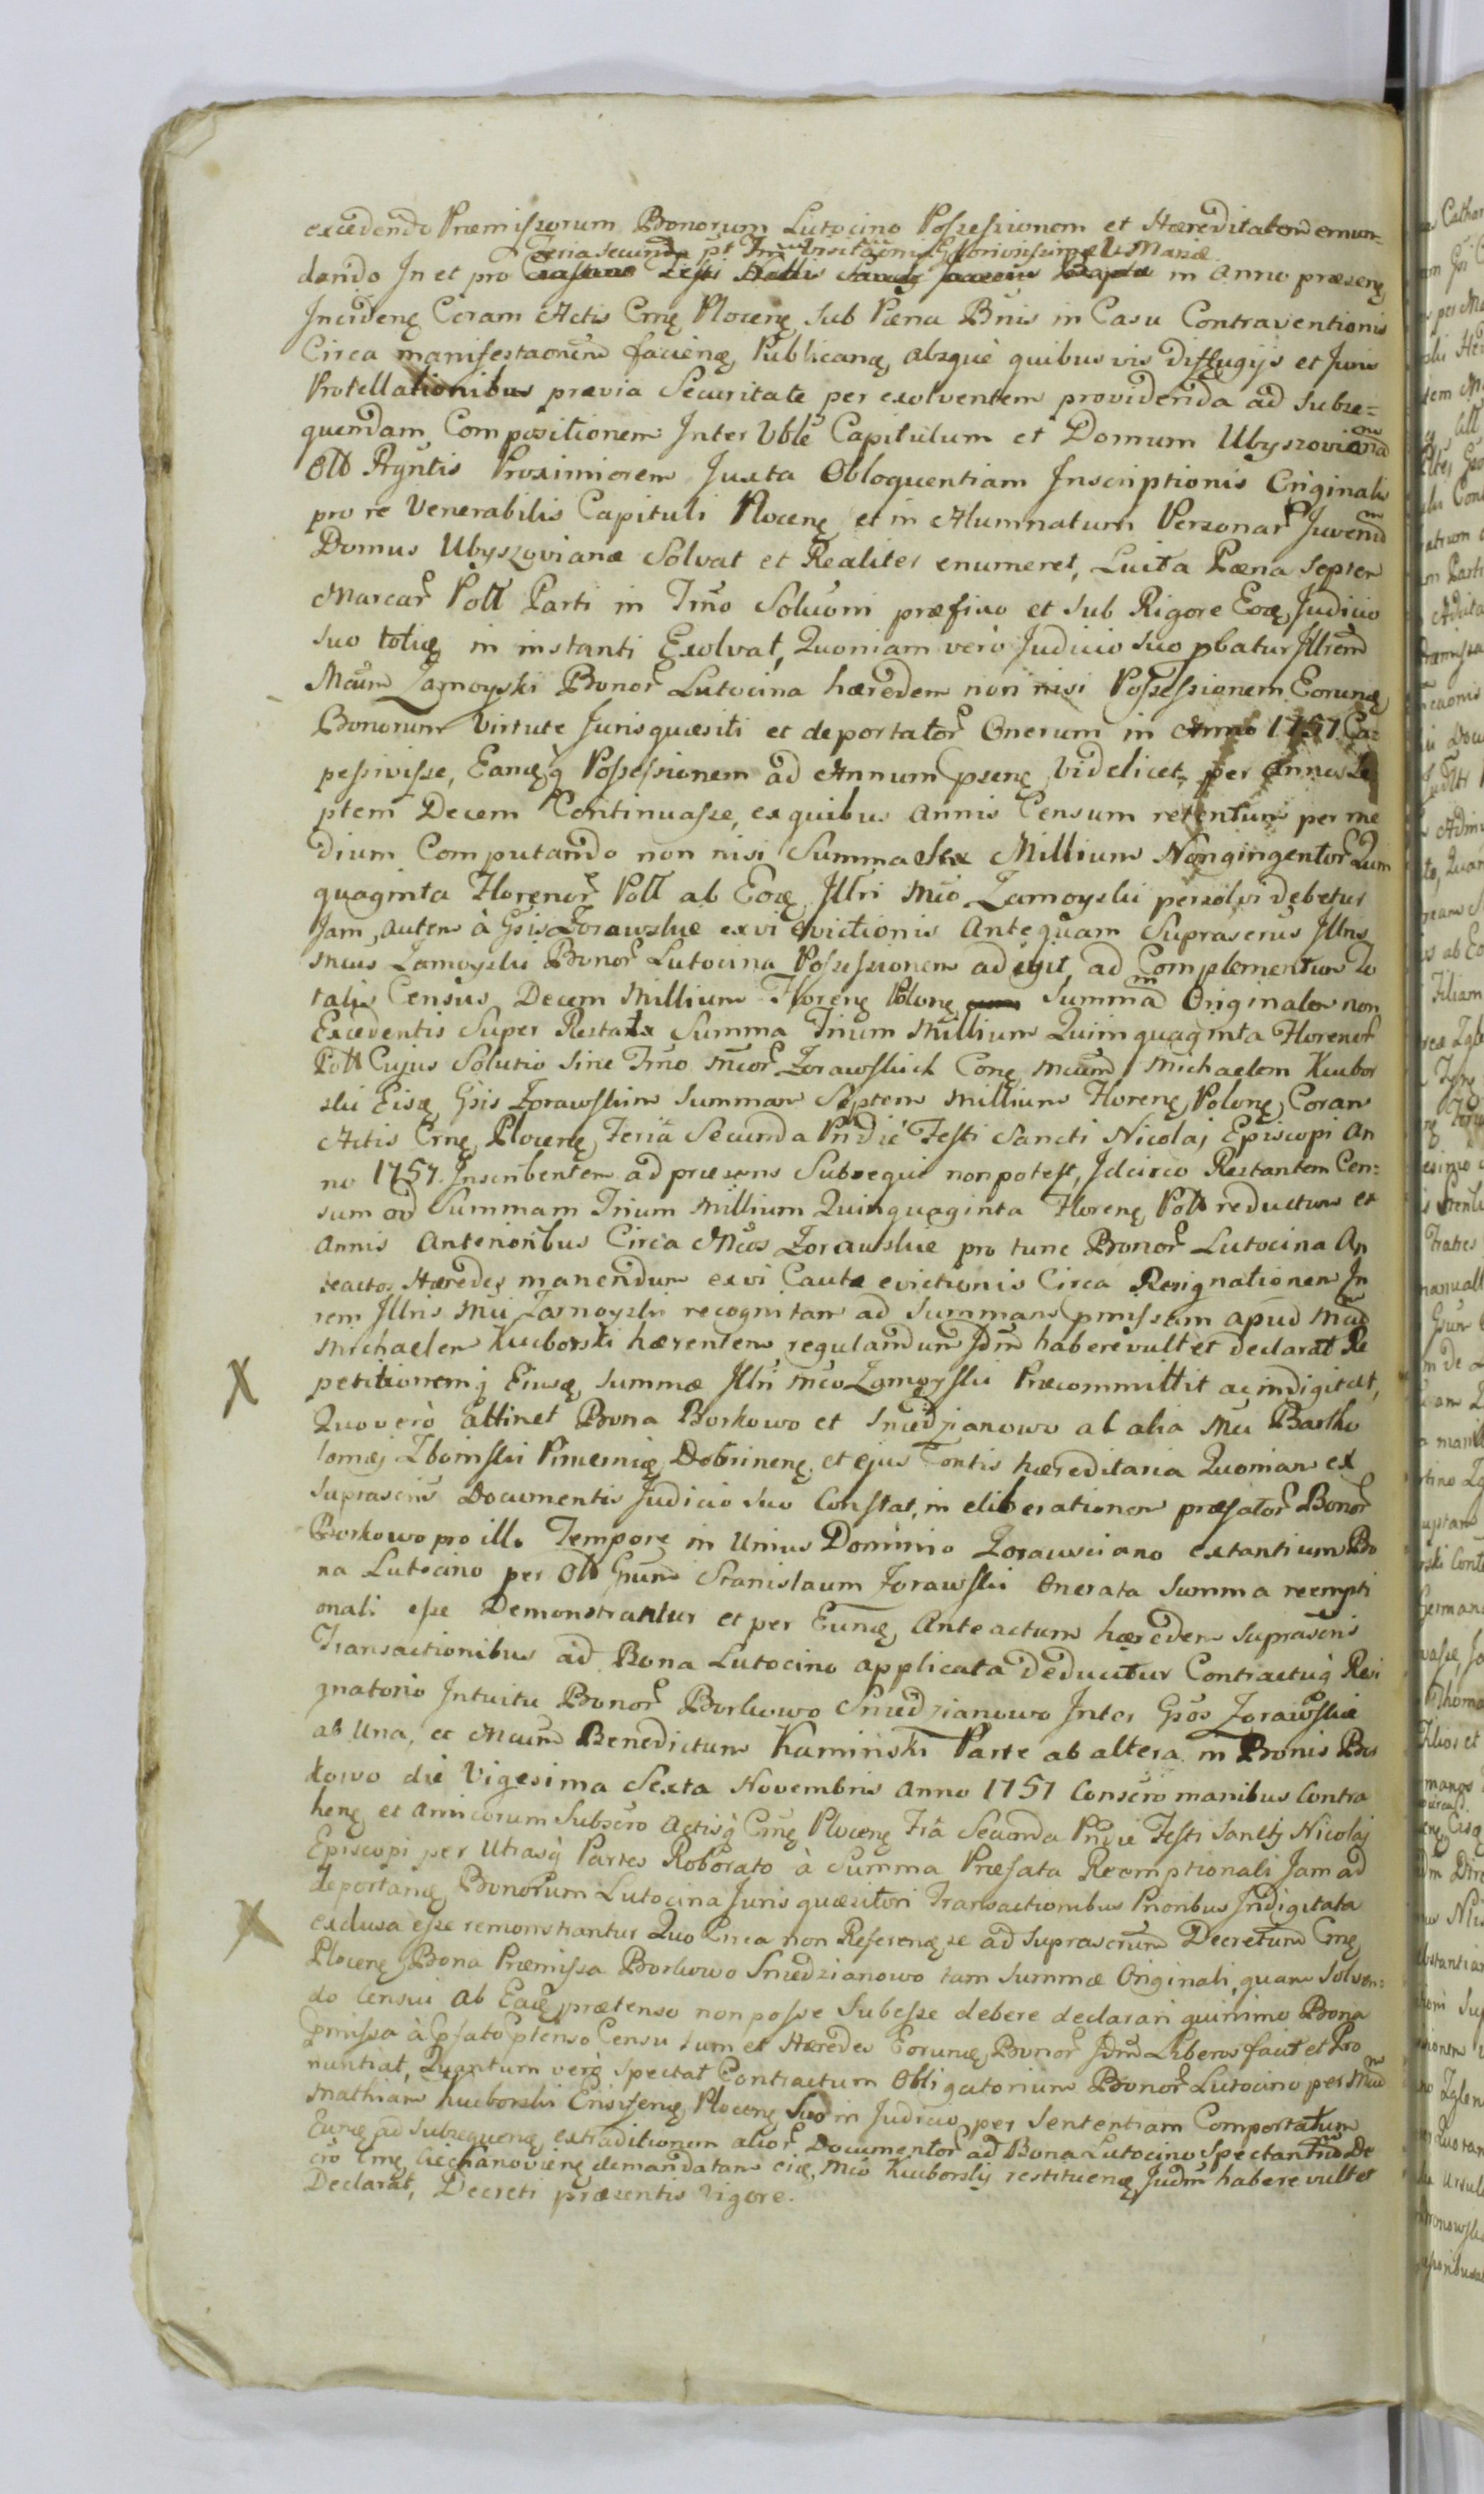 excedendo Præmissorum Bonorum Lutocino Possessionem et Hæreditatem emun-
Feria secunda pt Visitationis Gloriosissimæ V. Mariæ
dando In et pro in Anno præsenę
Incidenę Coram Actis Crnę Plocenę sub Pæna Bnis in Casu Contraventionis
Circa manifestaonem facienę Publicanę, absque quibus vis diffugijs et Juris
Protellationibus prævia Securitate per exolventem providenda ad subse=
quendam Compositionem Inter Vble Capitulum et Domum Ubyszovianam
Proximiorem Juxta Obloquentiam Inscriptionis Originalis
pro re Venerabilis Capituli Plocenę et in Alumnatum Personar Juvenum
Domus Ubyszovianæ Solvat et Realiter enumeret, Luita Pæna septem
Marcar Poll Parti in Trno Soluoni præfixo et sub Rigore Eoę Judicio
suo totię in instanti Exolvat, Quoniam verò Judicio suo pbatur Jllrem
Mcum Zamoyski Bonor Lutocina hæredem non nisi Possessionem Eorunę
Bonorum Virtute Juris quæsiti et deportator Onerum in Anno 1757 Ca=
pessivisse, Eanęq Possessionem ad Annum psenę videlicet, per annos Se
ptem Decem Continuasse, ex quibus annis Censum retentum per me
dium Computando non nisi Summa Sex Millium Nongingentor Quin
quaginta Florenor Poll ab Eoę Jllri Mco Zamoyski persolvi debetur
Jam autem à Gsis Zorawskie ex vi evictionis Antequam Suprascrus Jllris
Mcus Zamoyski Bonor Lutocina Possessionem adijit, ad Complementum To
talis Census Decem Millium Florenę Polonę Summam Originalem non
Excedentis Super Restata Summa Trium Millium Quinquaginta Florenor
Poll Cujus Solutio sine Trno Mcor Zorawskich Conę Mcum Michaelem Kuibor
ski Eisę Gsis Zorawskim Summam Septem Millium Florenę Polonę Coram
Actis Crnę Plocenę Feria Secunda Pridiè Festi Sancti Nicolaj Episcopi An
no 1757. Inscribentem ad præsens Subsequi non potest, Idcirco Restantem Cen=
sum ad Summam Trium Millium Quinquaginta Florenę Poll reductum et
Annis Anterioribus Circa Mcos Zorawskie pro tunc Bonor Lutocina An
teactos Hæredes manendum ex vi Cautæ evictionis Circa Resignationem In
rem Jllris Mci Zamoyski recognitam ad Summam pmissam apud Mcum
Michaelem Kuiborski hærentem regulandum Jdm habere vult et declarat Re
petitionemq Eiusę summæ Jllri Mco Zamoyski Præcommittit ac indigitat,
Quo verò attinet Bona Borkowo et Sniedzianowo ab alia Mci Bartho
lomæj Zboinski Pincernię Dobrinenę et ejus Contis hæreditaria Quoniam ex
suprascris Documentis Judicio suo Constat, in eliberationem præfator Bonor
Borkowo pro illo Tempore in Unius Dominio Zorawsciano extantium Bo
na Lutocino per Olb Gnum Stanislaum Zorawski Onerata Summa reempti
onali esse Demonstrantur et per Eunę Anteactum hæredem suprascris
Transactionibus ad Bona Lutocino applicata deducitur Contractuq Resi
gnatorio Intuitu Bonor Borkowo Sniedzianowo Inter Gsos Zorawskie
ab Una, et Mcum Benedictum Kaminski Parte ab altera in Bonis Bor
kowo die Vigesima Sexta Novembris Anno 1757 Conscro manibus Contra
henę et Amicorum Subscro Actisq Crnę Plocenę Fra Secunda Pridie Festi Sancti Nicolaj
Episcopi per Utrasq Partes Roborato à Summa Præfata Reemptionali Jam ad
deportanę Bonorum Lutocina Juris quæsitori Transactionibus Prioribus Indigitata
exclusa esse remonstrantur Quo Circa non Referenę se ad suprascrum Decretum Crnę
Plocenę Bona Præmissa Borkowo Sniedzianowo tam Summæ Originali, quam Solven=
do Censui ab Eaę prætenso non posse Subesse debere declarari quinimo Bona
pmissa à psato ptenso Censu tum et Hæredes Eorunę Bonor Jdm Liberos facit et Pro
nuntiat, Quantum verò spectat Contractum Obligatorium Bonor Lutocino per Mcum
Mathiam Kuiborski Ensifenę Plocenę Suo in Judicio per Sententiam Comportatum
Eunę ad subsequenę extraditionem alior Documentor ad Bona Lutocino Spectantium De
cro Crnę Ciechanovienę demandatam eię Mco Kuiborskij restituenę Judm habere vult et
Declarat, Decreti præsentis vigore.